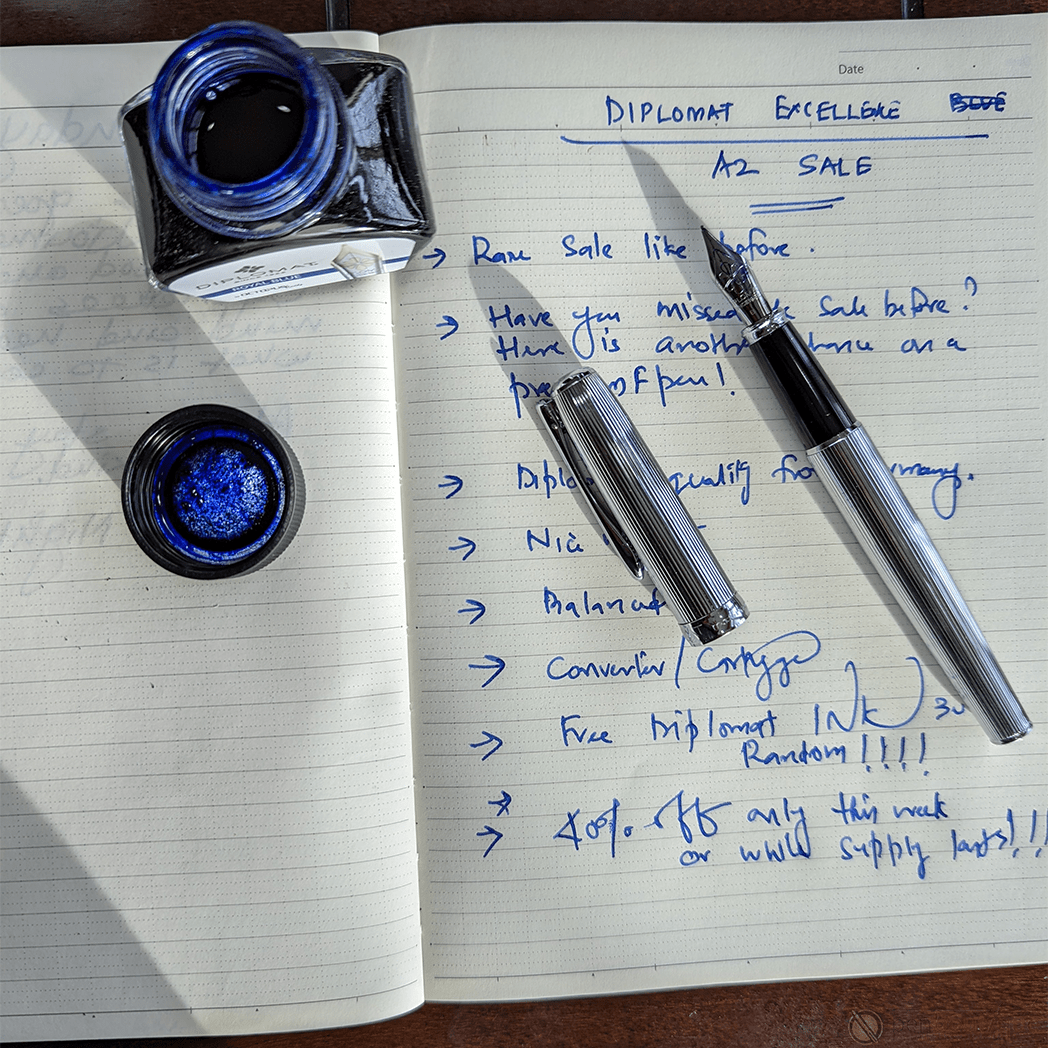 DIPLOMAT
ROYAL BLUE
Date
DIPLOMAT EXCELLENCE BLUE
A2 SALE
→ Rare Sale like before.
→ Have you missed Sale before?
Here is another chance on a
pen!
→ quality
→ Nice
→ Balanced
→ Converter/
→ Free Diplomat INK 30
Random!!!!
→ 40% off only this week
or while supply lasts!!!